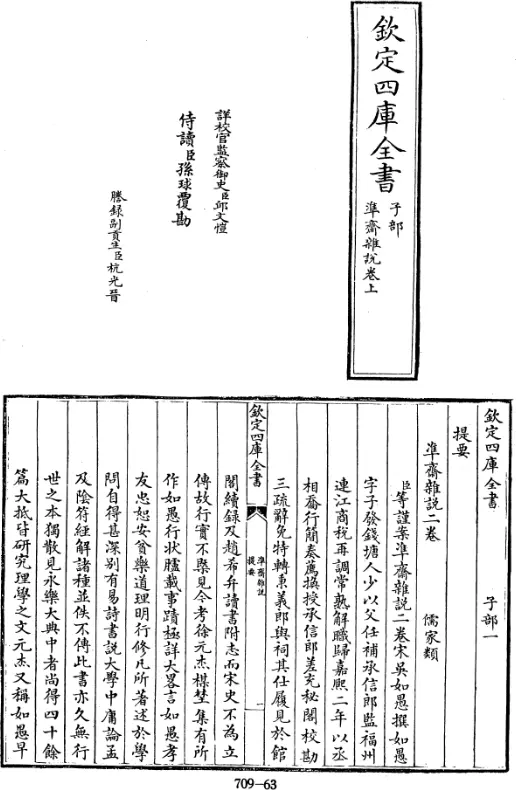 欽定四庫全書
子部
準齋雜說卷上
詳校官監察御史臣邱文愷
侍讀臣孫球覆勘
謄錄副貢生臣杭光晉
欽定四庫全書 子部一
提要
準齋雜說二卷 儒家類
臣等謹案準齋雜說二卷宋吳如愚撰如愚
字子發錢塘人少以父任補承信郎監福州
連江商稅再調常熟解職歸嘉熙二年以丞
相喬行簡奏薦授承信郎差充秘閣校勘
三疏辭免特轉秉義郎與祠其仕履見於館
欽定四庫全書
準齋雜說
提要
一
閣續錄及趙希弁讀書附志而宋史不為立
傳故行實不槩見今考徐元杰楳埜集有所
作如愚行狀臚載事蹟極詳大畧言如愚孝
友忠恕安貧樂道理明行修凡所著述於學
問自得甚深別有易詩書說大學中庸論孟
及陰符經解諸種並佚不傳此書亦久無行
世之本獨散見永樂大典中者尚得四十餘
篇大抵皆研究理學之文元杰又稱如愚早
709-63